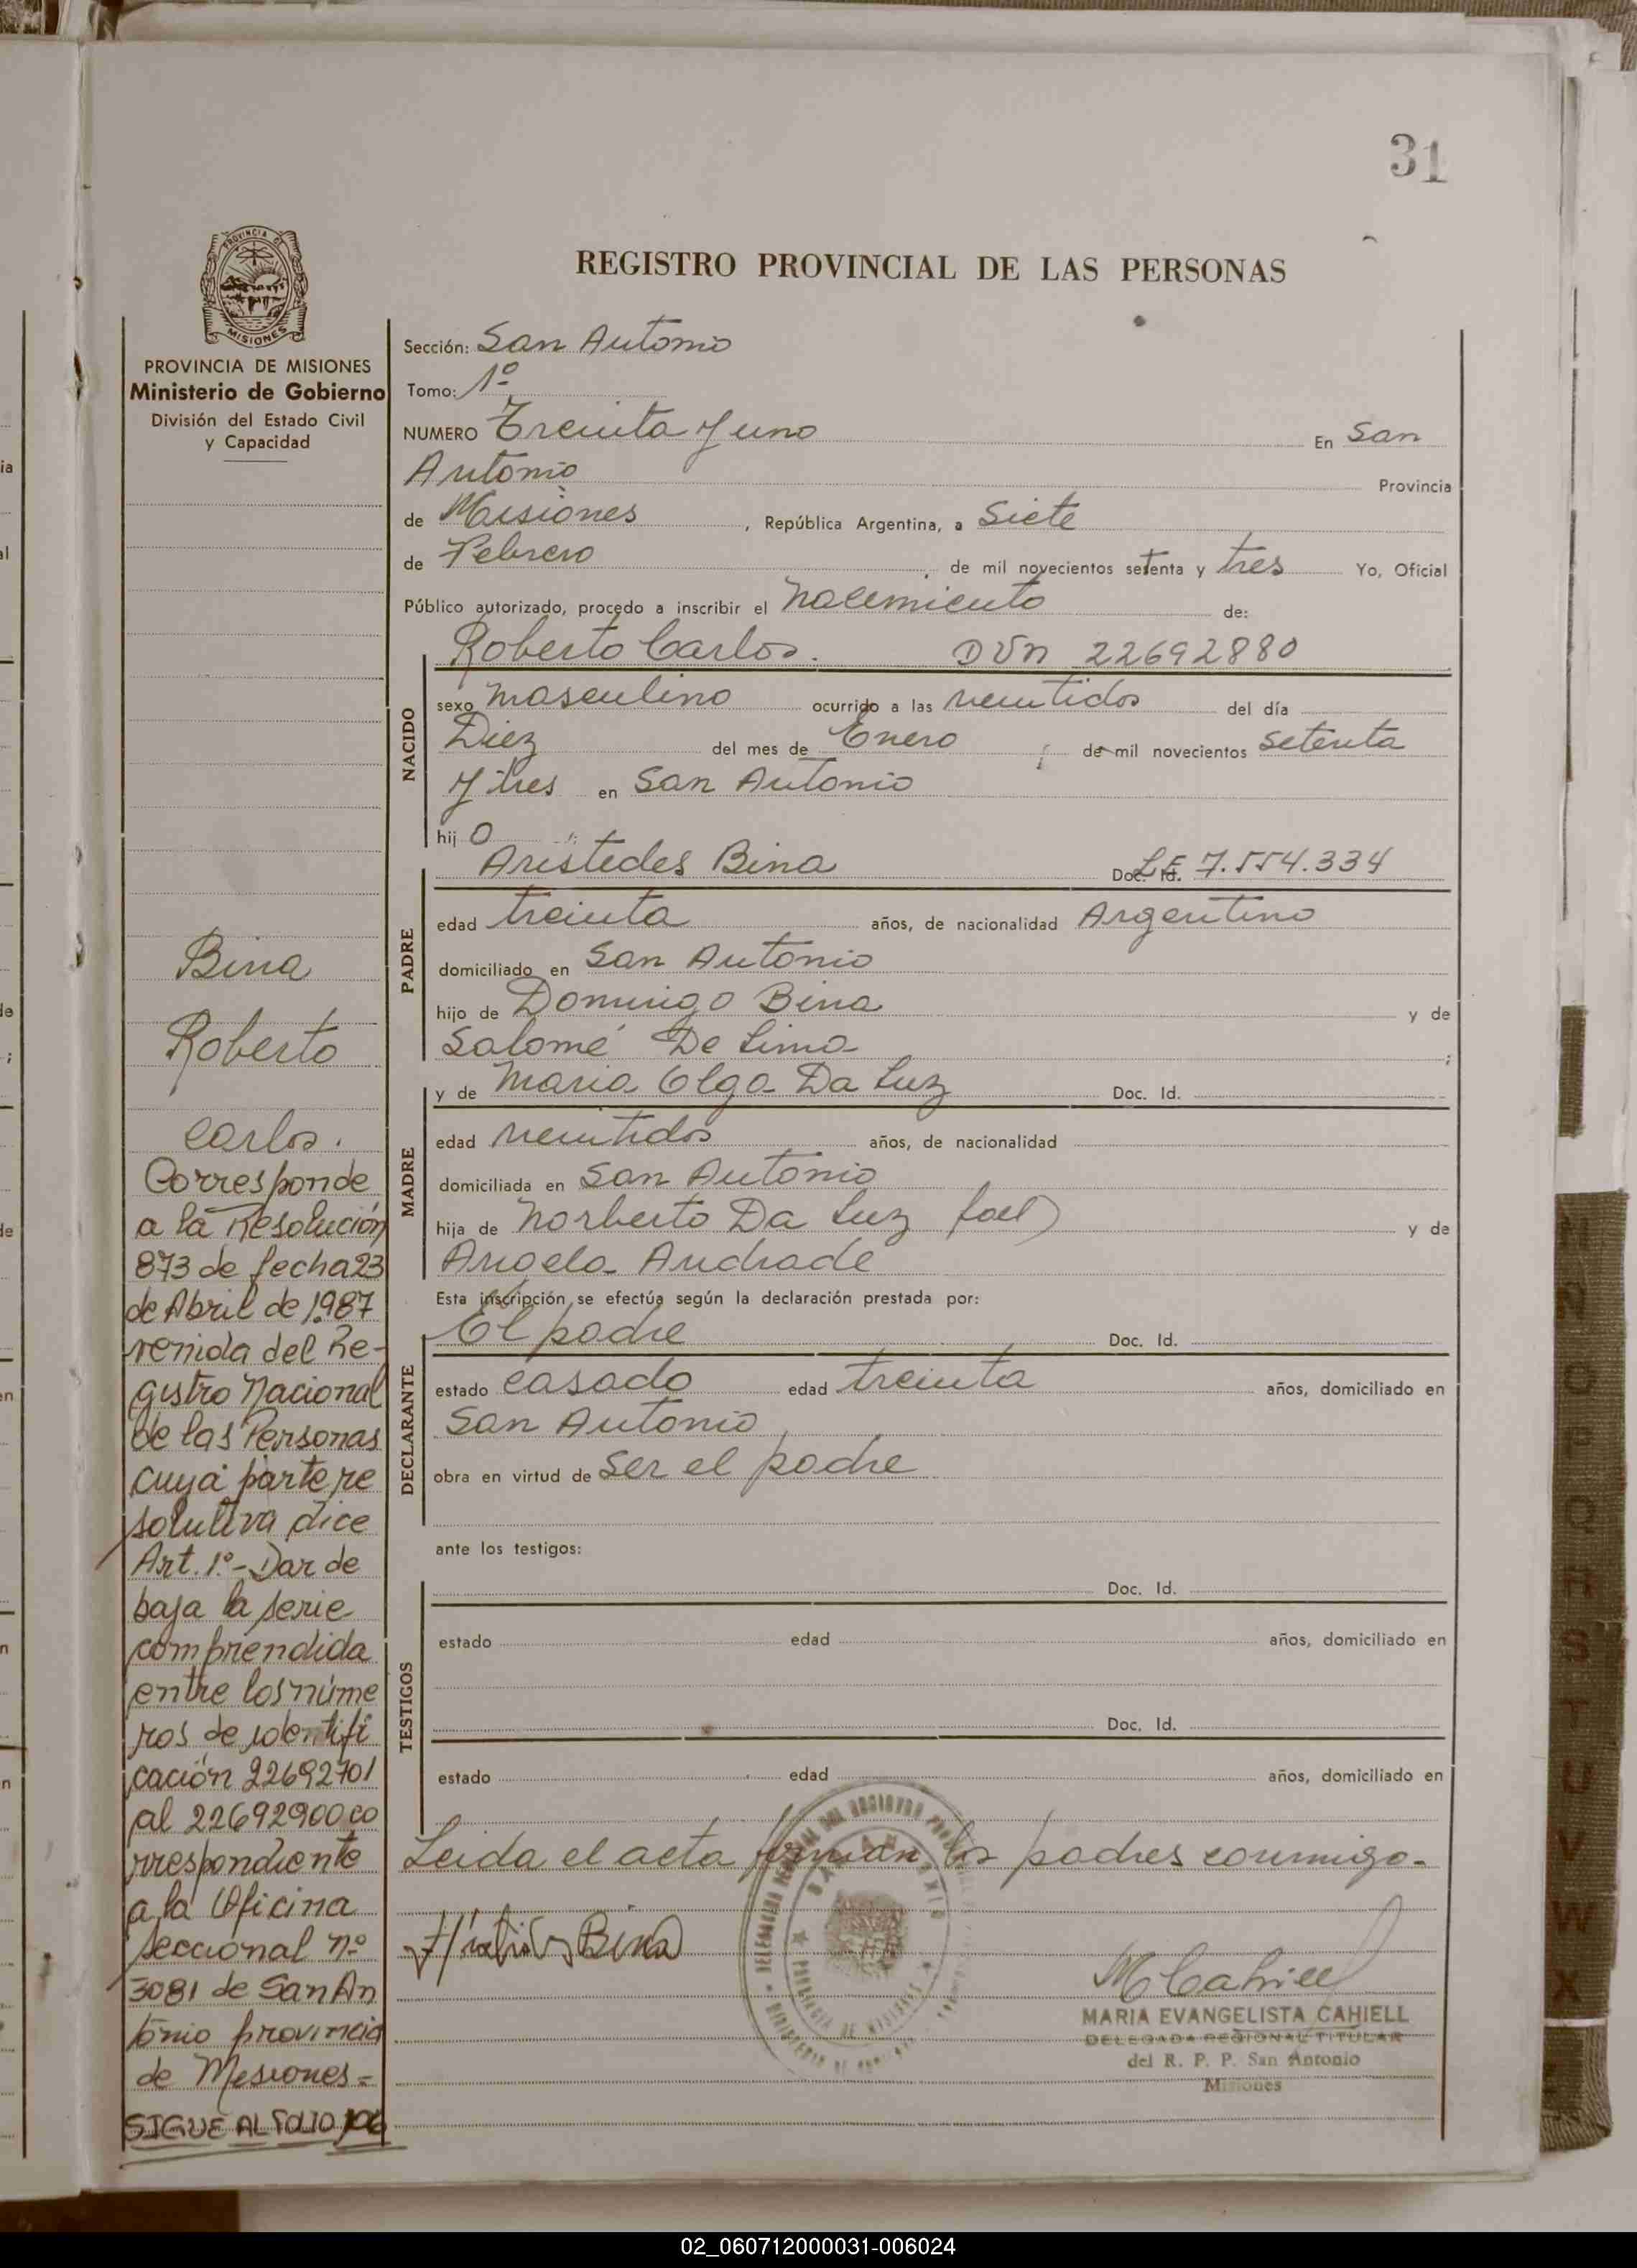 31
PROVINCIA DE
MISIONES
REGISTRO PROVINCIAL DE LAS PERSONAS
PROVINCIA DE MISIONES
Ministerio de Gobierno
División del Estado Civil
y Capacidad
Sección: San Antonio
Tomo: 1º
NUMERO Treinta y uno En San
Antonio Provincia
de Misiones, República Argentina, a Siete
de Febrero de mil novecientos setenta y tres Yo, Oficial
Público autorizado, procedo a inscribir el Nacimiento de:
Roberto Carlos. DUN 22692880
NACIDO
sexo masculino ocurrido a las veintidos del día
Diez del mes de Enero de mil novecientos setenta
y tres en San Antonio
hijo
PADRE
Aristedes Bina Doc. Id. L.E 7.554.334
edad treinta años, de nacionalidad Argentino
domiciliado en San Antonio
hijo de Domingo Bina y de
Salomé De Lima ;
MADRE
y de Maria Olga Da Luz Doc. Id.
edad veintidos años, de nacionalidad
domiciliada en San Antonio
hija de Norberto Da Luz y de
Angela Andrade
Esta inscripción se efectúa según la declaración prestada por:
DECLARANTE
El padre Doc. Id.
estado casado edad treinta años, domiciliado en
San Antonio
obra en virtud de Ser el padre
ante los testigos:
TESTIGOS
Doc. Id.
estado edad años, domiciliado en
Doc. Id.
estado edad años, domiciliado en
Leida el acta firman los padres conmigo.
Bina
MCahiell
MARIA EVANGELISTA CAHIELL
DELEGADA REGIONAL TITULAR
del R. P. P. San Antonio
Misiones
Bina
Roberto
Carlos.
Corresponde
a la Resolución
873 de fecha 23
de Abril de 1987
venida del Re-
gistro Nacional
de las Personas
cuya parte re
solutiva dice
Art. 1º- Dar de
baja la serie
comprendida
entre los núme
ros de identifi
cación 22692701
al 22692900 co
rrespondiente
a la Oficina
seccional nº
3081 de San An
tonio provincia
de Mesiones=
SIGUE AL FOLIO 106
N
O
P
Q
R
S
T
U
V
W
X
02_060712000031-006024